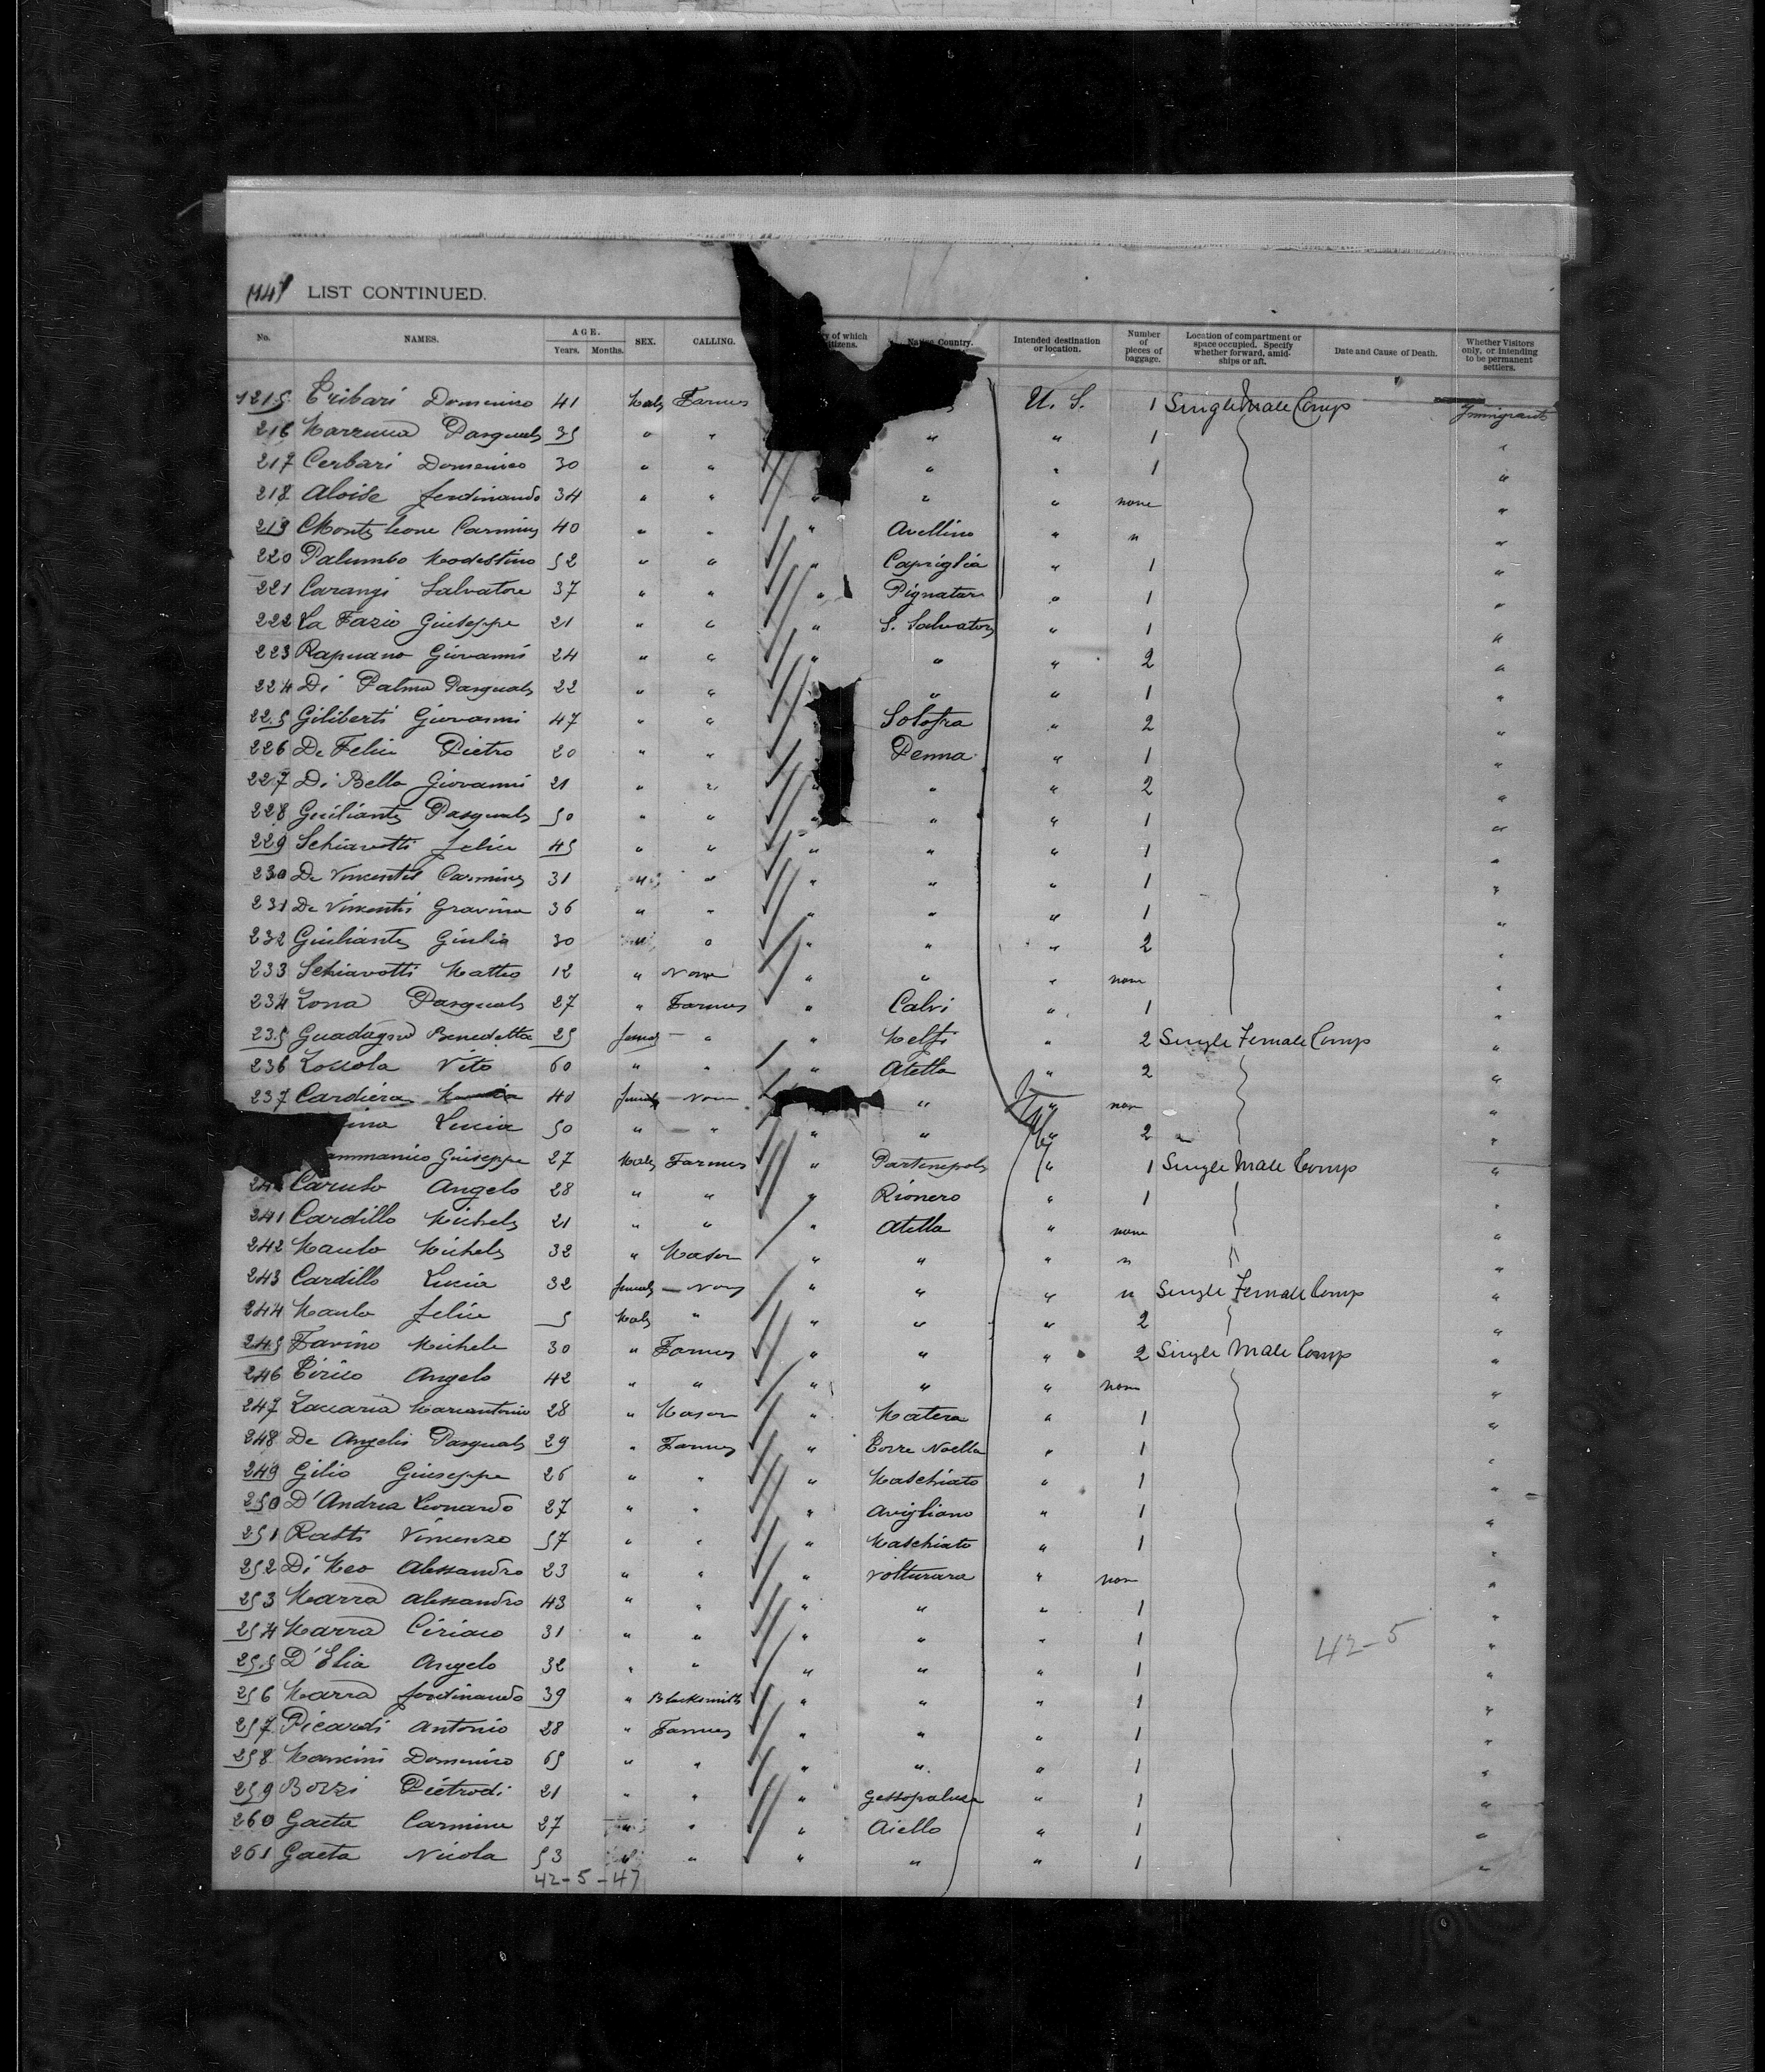 LIST CONTINUED.
No. NAMES. AGE. Years. Months. SEX. CALLING. y of which itizens. Native Country. Intended destination or location. Number of pieces of baggage. Location of compartment or space occupied. Specify whether forward, amidships or aft. Date and Cause of Death. Whether Visitors only, or intending to be permanent settlers.
1215 Tribari Domenico 41 Male Farmer U. S. 1 Single Male Comp Immigrant
216 Pasquale 35 " " " " 1 "
217 Cerbari Domenico 30 " " " " 1 "
218 Aloise ferdinando 34 " " " " " none "
219 Monteleone Carmine 40 " " " Avellino " " "
220 Palumbo Modestino 52 " " " Capriglia " 1 "
221 Carangi Salvatore 37 " " " Pignatar " 1 "
222 La Fazio Giuseppe 21 " " " S. Salvatore " 1 "
223 Rapuano Giovanni 24 " " " " " 2 "
224 Di Palma Pasquale 22 " " " " 1 "
225 Giliberti Giovanni 47 " " Solofra " 2 "
226 De Felice Pietro 20 " " Penna " 1 "
227 Di Bello Giovanni 21 " " " " " 2 "
228 Giuliante Pasquale 50 " " " " " 1 "
229 Schiavotti felice 45 " " " " " 1 "
230 De Vincentis Carmine 31 " " " " " 1 "
231 De Vincentis Gravino 36 " " " " " 1 "
232 Giuliante Giulio 30 " " " " " 2 "
233 Schiavotti Matteo 12 " None " " " none "
234 Zona Pasquale 27 " Farmer " Calvi " 1 "
235 Guadagno Benedetta 25 female " " Melfi " 2 Single Female Comp "
236 Zoccola Vito 60 " " " Atella " 2 "
237 Cardiera 40 female None " " none "
ina Lucia 50 " " " " " 2 "
ammanico Giuseppe 27 Male Farmer " Partenepole " 1 Single Male Comp "
24 Caruso Angelo 28 " " " Rionero " 1 "
241 Cardillo Michele 21 " " " Atella " none "
242 Manlo Michele 32 " Mason " " " " "
243 Cardillo Lucia 32 female None " " " " Single Female Comp "
244 Manlo felice 5 Male " " " " 2 "
245 Farino Michele 30 " Farmer " " " 2 Single Male Comp "
246 Cirico Angelo 42 " " " " " none "
247 Zaccaria Marcantonio 28 " Mason " Matera " 1 "
248 De Angelis Pasquale 29 " Farmer " Torre Noella " 1 "
249 Gilio Giuseppe 26 " " " Maschiato " 1 "
250 D'Andrea Leonardo 27 " " " Avigliano " 1 "
251 Vincenzo 57 " " " Maschiato " 1 "
252 Di Meo Alessandro 23 " " " Volturara " none "
253 Marra Alessandro 43 " " " " " 1 "
254 Marra Ciriaco 31 " " " " " 1 42-5 "
255 D'Elia Angelo 32 " " " " " 1 "
256 Marra ferdinando 39 " Blacksmith " " " 1 "
257 Picardi Antonio 28 " Farmer " " " 1 "
258 Mancini Domenico 65 " " " " " 1 "
259 Bozzi Pietrodi 21 " " " Gessopalusa " 1 "
260 Gaeta Carmine 27 " " " Aiello " 1 "
261 Gaeta Nicola 53 " " " " " 1 "
42-5-47